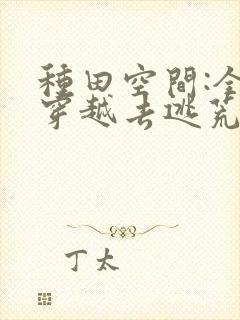 種田空間:全
穿越去逃荒
丁太